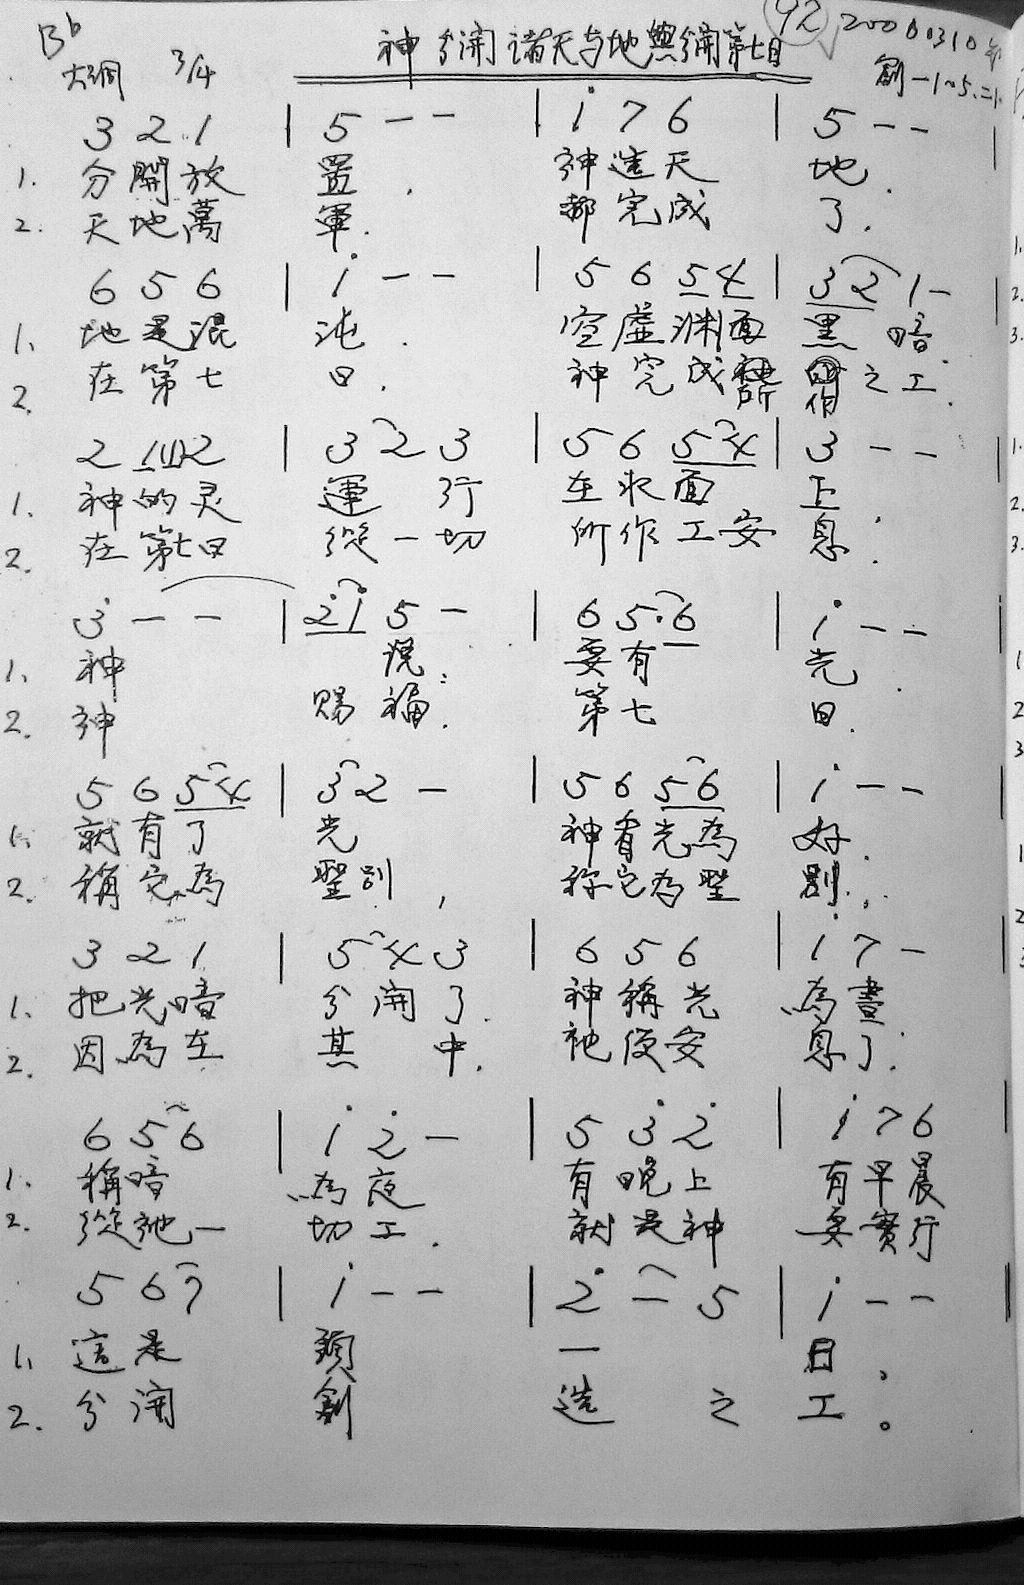 B♭ 神分開諸天与地與分開第七日 92 20000310
大綱 3/4 創一1~5.二1.
3 2 1 | 5 - - | i 7 6 | 5 - -
1. 分開放 置. 神造天 地.
2. 天地萬 軍. 都完成 了.
6 5 6 | i - - | 5 6 5 4 | 3 2 1 -
1. 地是混 沌. 空虛淵面 黑 暗.
2. 在第七 日. 神完成所 作之工.
2 1(1)2 | 3 2 3 | 5 6 5 4 | 3 - -
1. 神的灵 運 行 在水面 上.
2. 在第七日 從一切 所作工安 息.
3 - - | 2 i 5 - | 6 5. 6 | i - -
1. 神 說: 要有 光.
2. 神 賜福. 第七 日.
5 6 5 4 | 3 2 - | 5 6 5 6 | i - -
1. 就有了 光 神看光為 好.
2. 稱它為 聖別, 称它為聖 別.
3 2 1 | 5 4 3 | 6 5 6 | i 7 -
1. 把光暗 分開了. 神稱光 為晝.
2. 因為在 其 中. 祂便安 息了.
6 5 6 | i 2 - | 5 3 2 | i 7 6
1. 稱暗 為夜 有晚上 有早晨
2. 從祂一 切工. 就是神 要實行
5 6 7 | i - - | 2 - 5 | i - -
1. 這是 頭 一 日。
2. 分開 創 造 之 工。